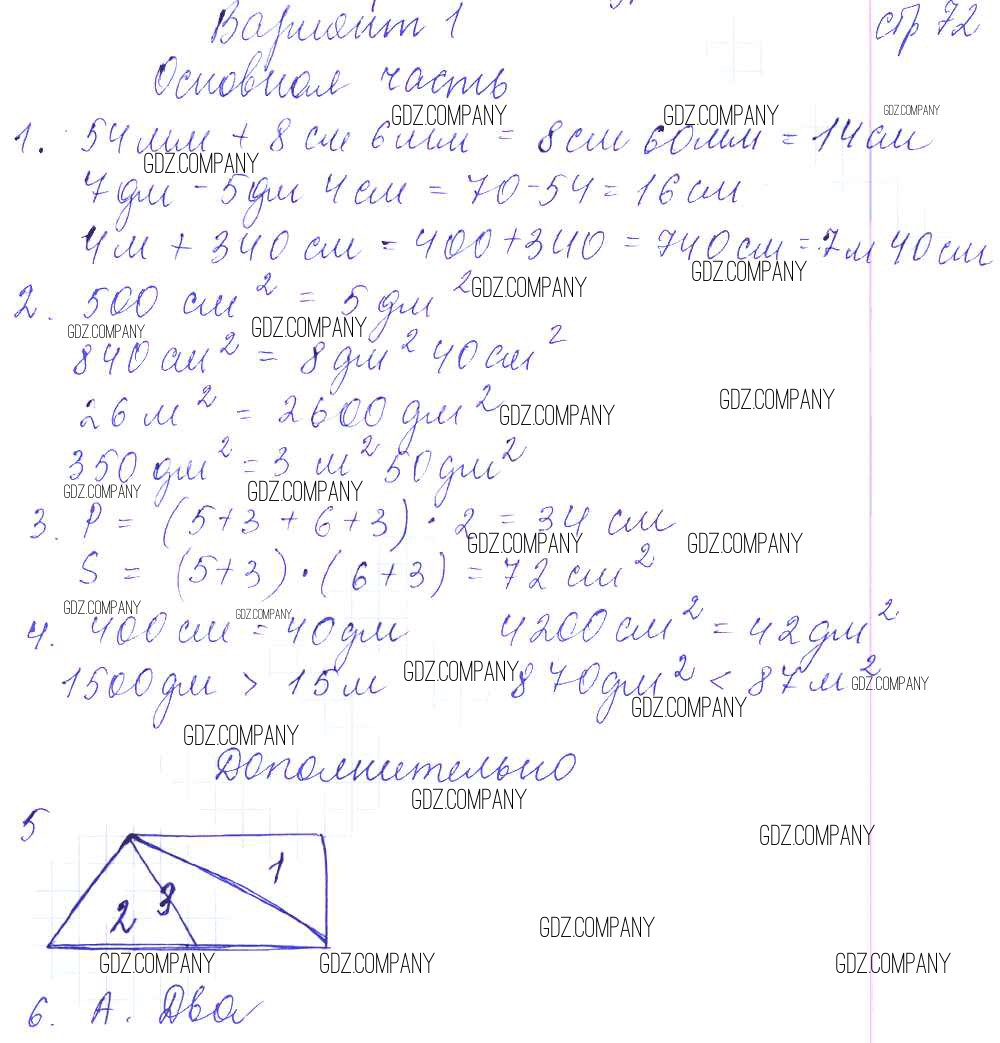 Вариант 1 стр 72
Основная часть
1. 54 мм + 8 см 6 мм = 8 см 60 мм = 14 см
7 дм - 5 дм 4 см = 70 - 54 = 16 см
4 м + 340 см = 400 + 340 = 740 см = 7 м 40 см
2. 500 см² = 5 дм²
840 см² = 8 дм² 40 см²
26 м² = 2600 дм²
350 дм² = 3 м² 50 дм²
3. P = (5+3+6+3)·2 = 34 см
S = (5+3)·(6+3) = 72 см²
4. 400 см = 40 дм 4200 см² = 42 дм²
1500 дм > 15 м 870 дм² < 87 м²
Дополнительно
5
1
2 3
6. А. Два
GDZ.COMPANY GDZ.COMPANY GDZ.COMPANY
GDZ.COMPANY
GDZ.COMPANY
GDZ.COMPANY
GDZ.COMPANY GDZ.COMPANY
GDZ.COMPANY
GDZ.COMPANY
GDZ.COMPANY GDZ.COMPANY
GDZ.COMPANY GDZ.COMPANY
GDZ.COMPANY GDZ.COMPANY
GDZ.COMPANY GDZ.COMPANY
GDZ.COMPANY
GDZ.COMPANY
GDZ.COMPANY
GDZ.COMPANY
GDZ.COMPANY
GDZ.COMPANY GDZ.COMPANY GDZ.COMPANY